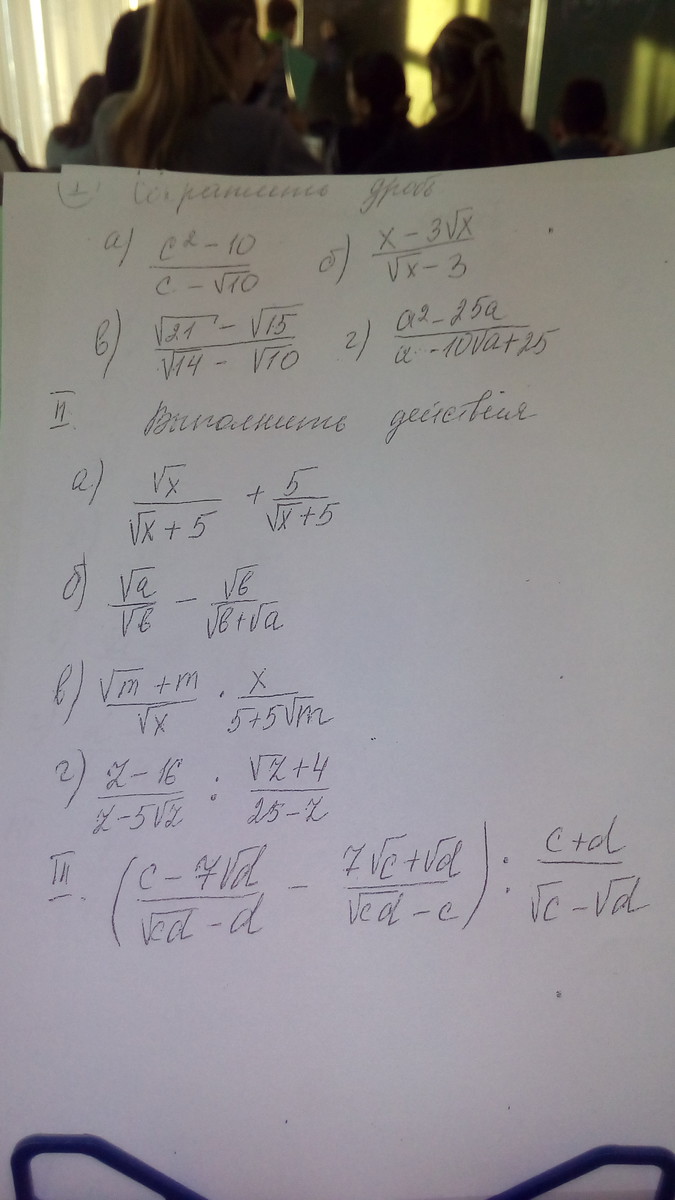 I Сократить дробь
а) (c² - 10)/(c - √10) б) (x - 3√x)/(√x - 3)
в) (√21 - √15)/(√14 - √10) г) (a² - 25a)/(a - 10√a + 25)
II. Выполнить действия
а) √x/(√x + 5) + 5/(√x + 5)
б) √a/√b - √b/(√b + √a)
в) (√m + m)/√x · x/(5 + 5√m)
г) (z - 16)/(z - 5√z) : (√z + 4)/(25 - z)
III. ((c - 7√d)/(√cd - d) - (7√c + √d)/(√cd - c)) : (c + d)/(√c - √d)